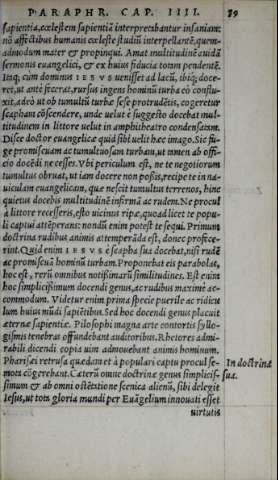 PARAPHR. CAP. IIII. 89
sapientia, cœlestem sapientiã interpretabantur insaniam:
nõ affectibus humanis cœleste studiũ interpellantẽ, quem-
admodum mater & propinqui. Amat multitudinẽ auidã
sermonis euangelici, & ex huius fiducia totam pendentẽ.
Itaq; cũm domius IESVS uenisset ad lacũ, ibiq; doce-
ret, ut ante fecerat, rursus ingens hominũ turba eò conflu-
xit, adeò ut ob tumultũ turbæ sese protrudẽtis, cogeretur
scapham cõscendere, unde uelut è suggesto docebat mul-
titudinem in littore uelut in amphitheatro condensatam.
Disce doctor euangelicæ quid sibi uelit hæc imago. Sic fu-
ge promiscuam ac tumultuosam turbam, ut tamen ab offi-
cio docẽdi ne cesses. Vbi periculum est, ne te negotiorum
tumultus obruat, ut iam docere non possis, recipe te in na-
uiculam euangelicam, quæ nescit tumultus terrenos, hinc
quietus docebis multitudinẽ infirmã ac rudem. Ne procul
à littore recesseris, esto uicinus ripæ, quoad licet te popu-
li captui attẽperans: nondũ enim potest te sequi. Primum
doctrina rudibus animis attemperãda est, donec profece-
rint. Quid enim IESVS è scapha sua docebat, nisi rudẽ
ac promiscuã hominũ turbam. Proponebat eis parabolas,
hoc est, rerũ omnibus notissimarũ similitudines. Est enim
hoc simplicissimum docendi genus, ac rudibus maximè ac-
commodum. Videtur enim prima specie puerile ac ridicu
lum huius mũdi sapiẽtibus. Sed hoc docendi genus placuit
æternæ sapientiæ. Pilosophi magna arte contortis syllo-
gismis tenebras offundebant auditoribus. Rhetores admi-
rabili dicendi copia uim admouebant animis hominum.
Pharisæi retrusa quædam et à populari captu procul se-
mota cõgerebant. Cæterũ omne doctrinæ genus simplicis-
simum & ab omni ostẽtatione scenica alienũ, sibi delegit
Iesus, ut tota gloria mundi per Euãgelium innouati esset
uirtutis
In doctrina
sua.